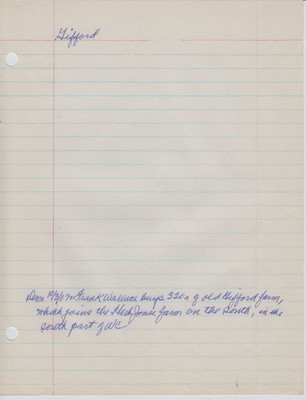 Gifford
Frank Wallace buys 320 a of old Gifford farm,
which joins the Herb Jones farm on the South, in the
South part of